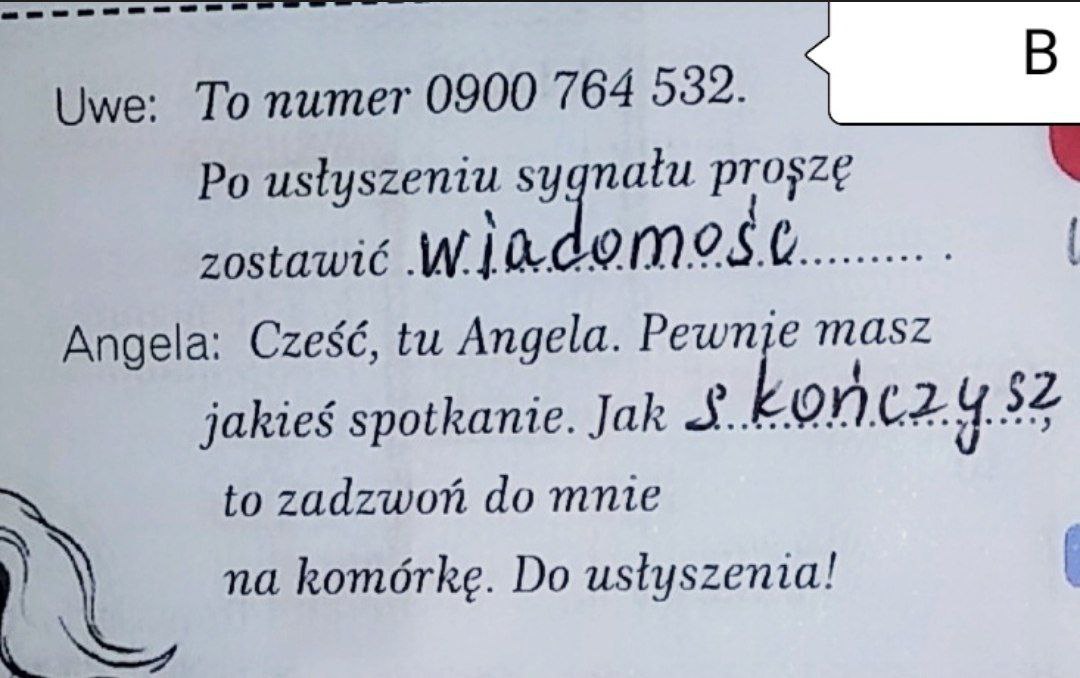 B
Uwe: To numer 0900 764 532.
Po usłyszeniu sygnału proszę
zostawić wiadomośc .
Angela: Cześć, tu Angela. Pewnie masz
jakieś spotkanie. Jak skończysz,
to zadzwoń do mnie
na komórkę. Do usłyszenia!